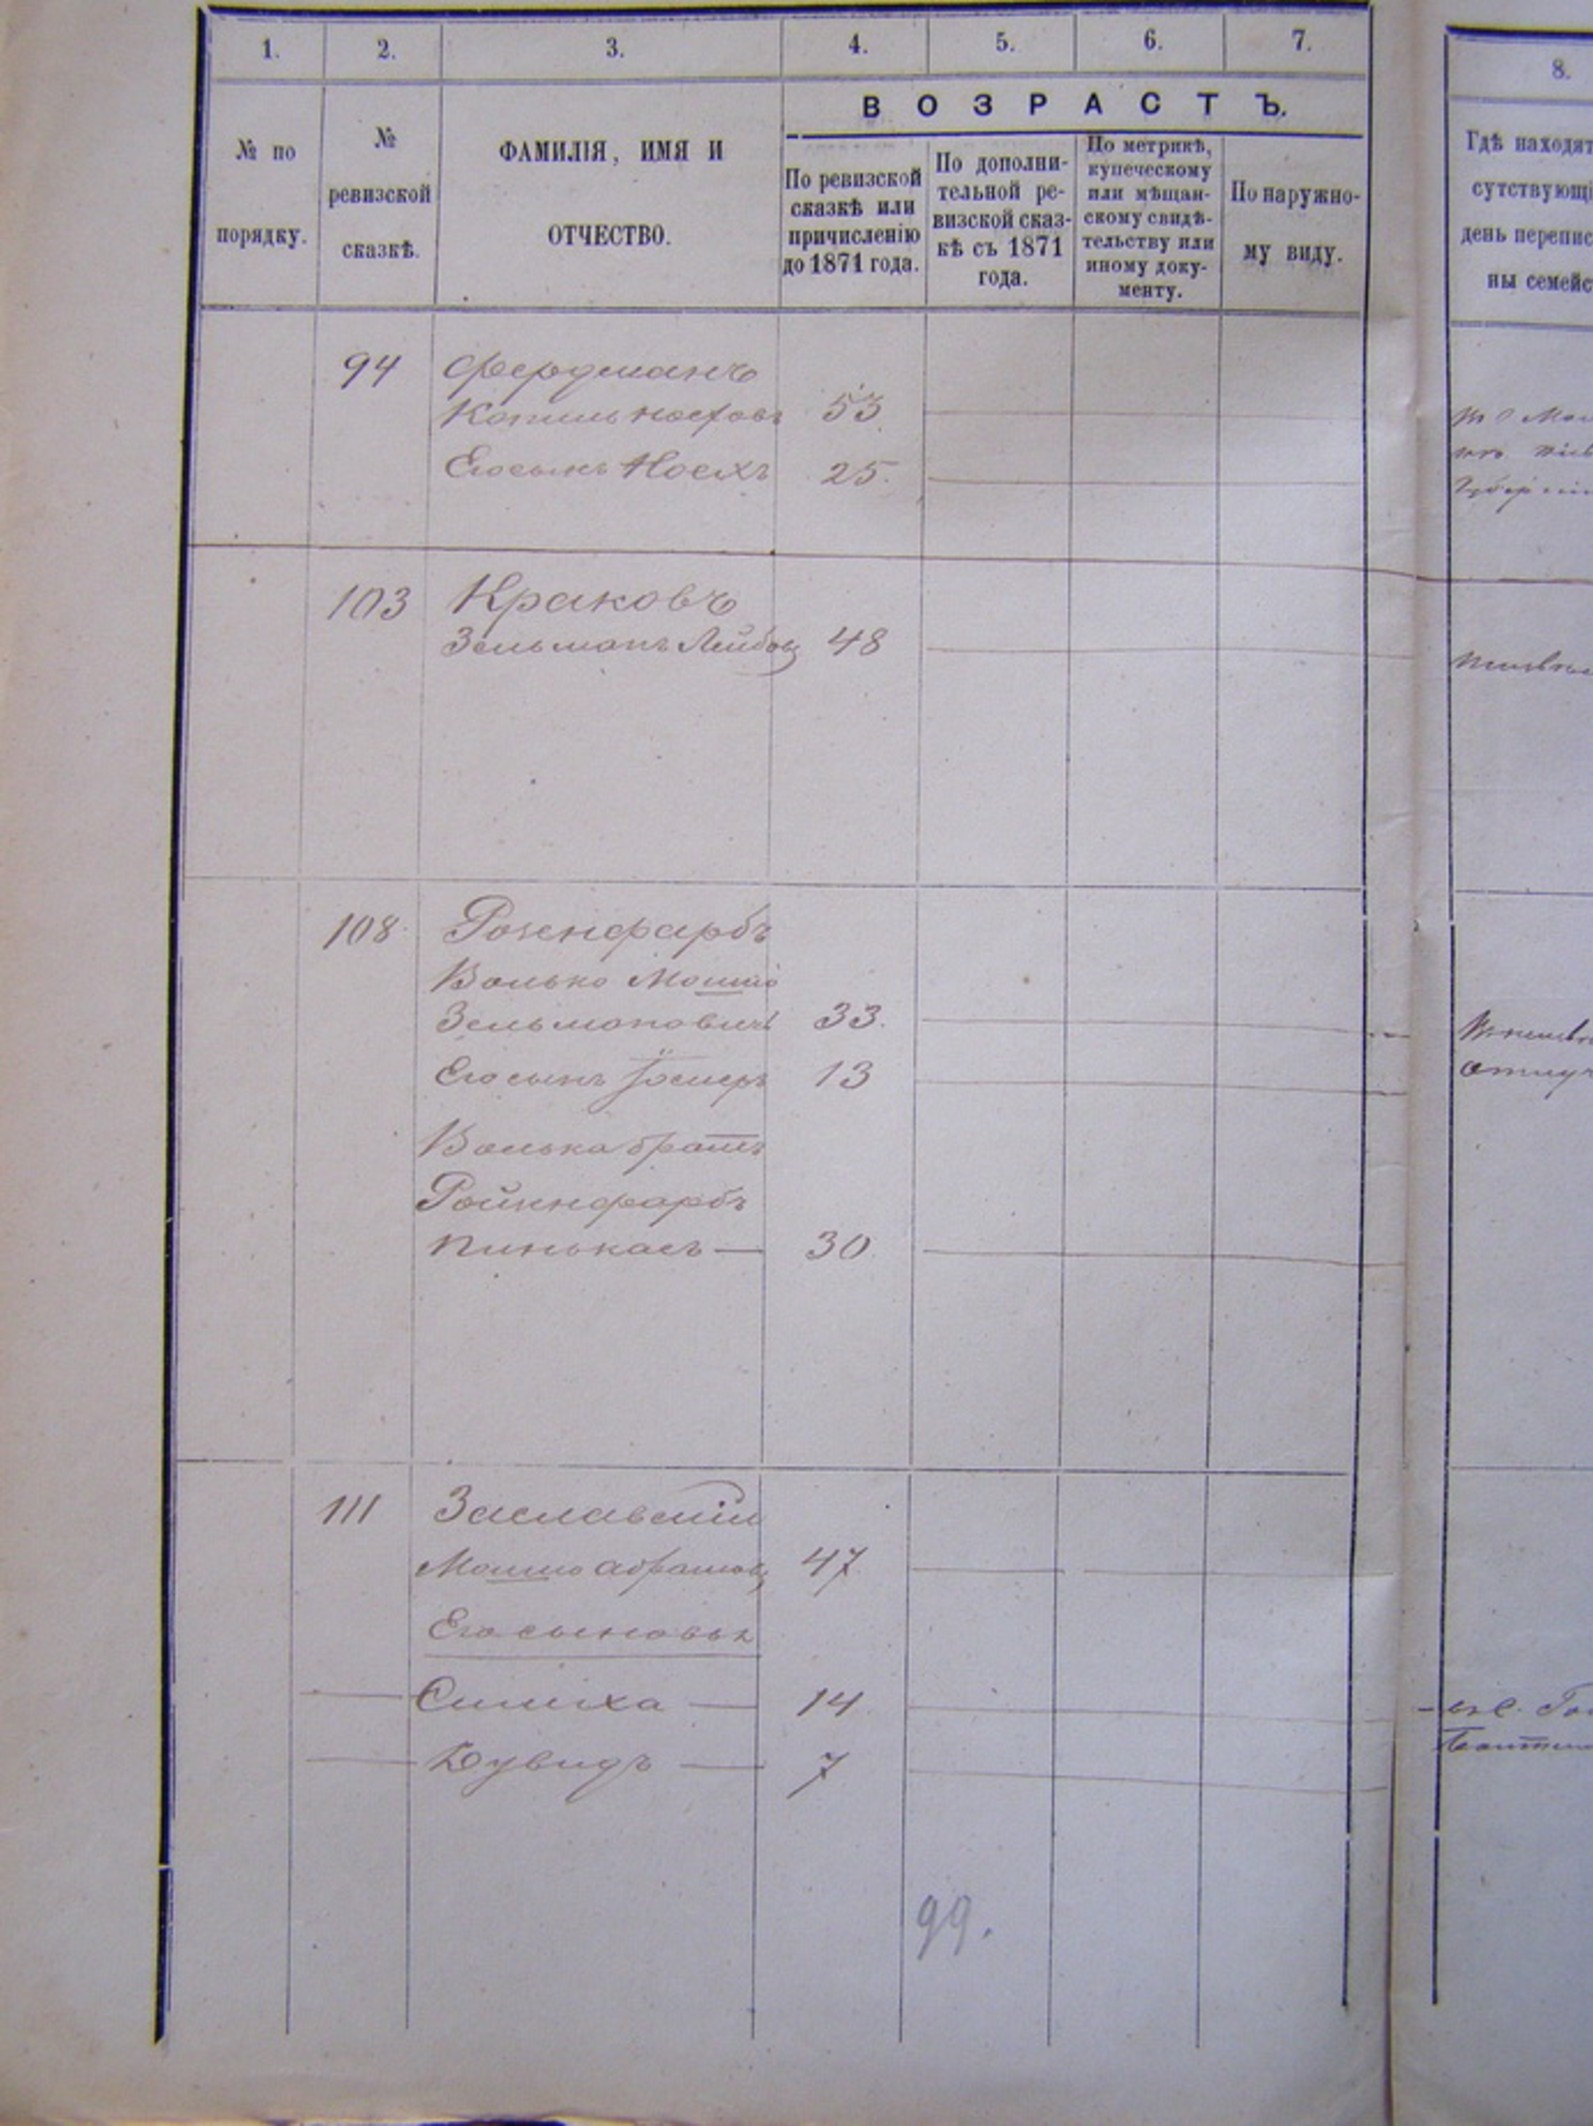 1. 2. 3. 4. 5. 6. 7.
8.
№ по
порядку.
№
ревизской
сказкѣ.
ФАМИЛІЯ, ИМЯ И
ОТЧЕСТВО.
ВОЗРАСТЪ.
По ревизской
сказкѣ или
причисленію
до 1871 года.
По дополни-
тельной ре-
визской сказ-
кѣ съ 1871
года.
По метрикѣ,
купеческому
или мѣщан-
скому свидѣ-
тельству или
иному доку-
менту.
По наружно-
му виду.
Гдѣ находят
сутствующі
день перепис
ны семейс
94 Фердманъ
Копиль Носховъ 53.
Его сынъ Носхъ 25.
103 Краковъ
Зельманъ Лейбов 48
108 Розенфарбъ
Волько Мошко
Зельмановичъ 33.
Его сынъ 13
Волька братъ
Ройзенфарбъ
Пинькасъ — 30
111 Заславскій
Мошко Абрамов 47
Его сыновья
— Симха — 14
— Дувидъ — 7
99.